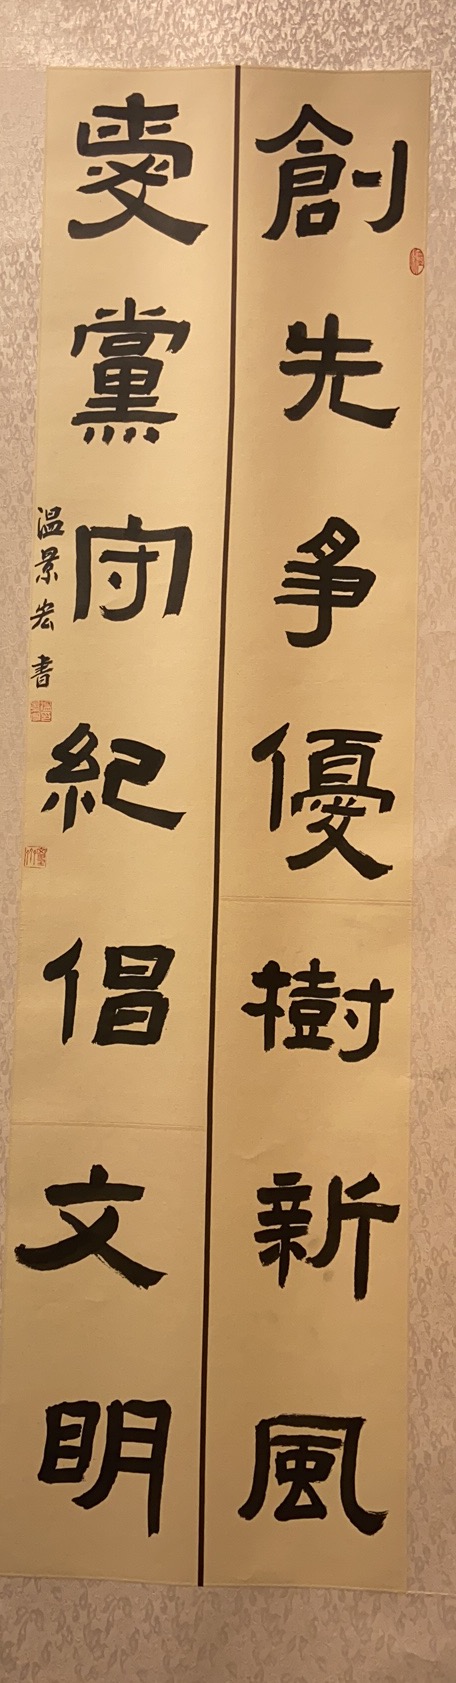 創先爭優樹新風
愛黨守紀倡文明
温景宏書